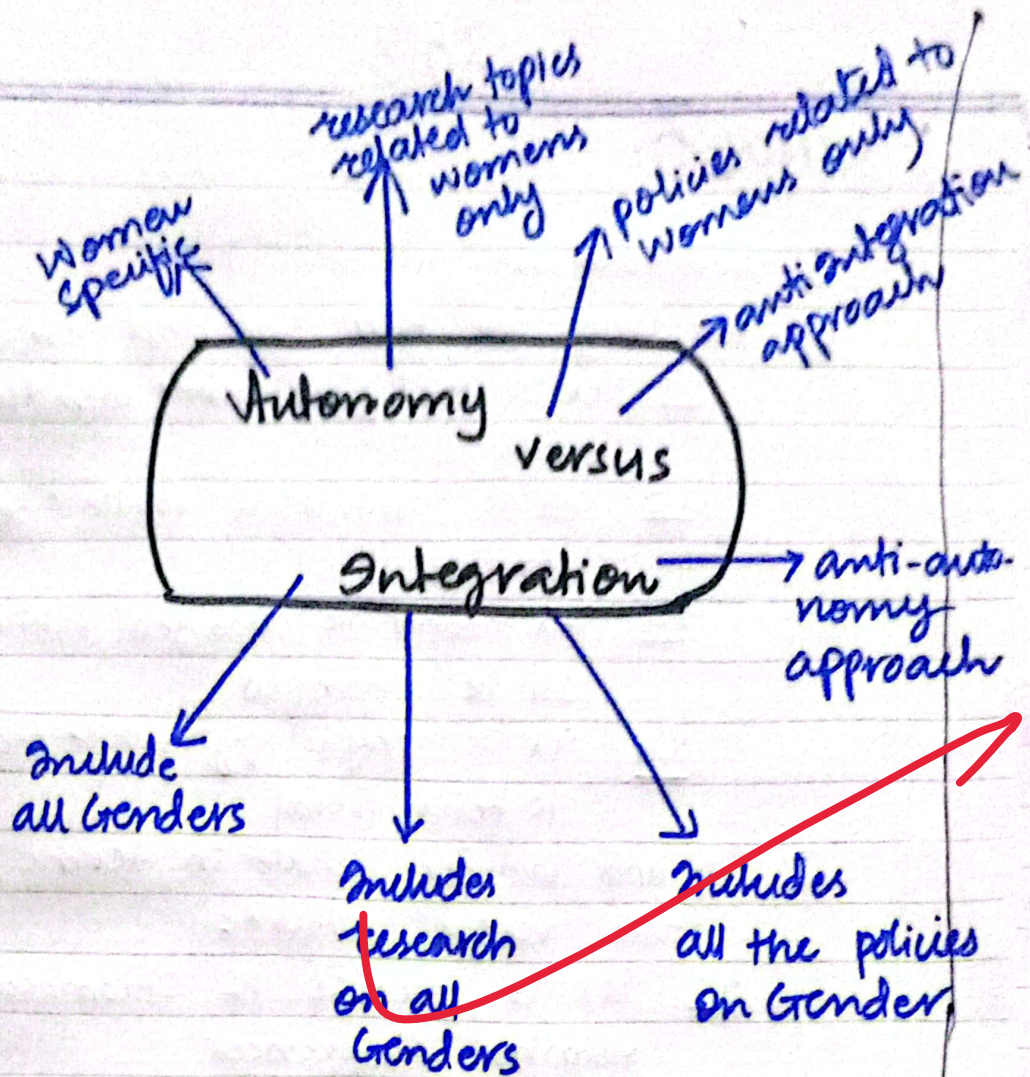 Women
specific
research topics
related to
womens
only
policies related to
womens only
anti integration
approach
Autonomy
versus
Integration
anti-auto-
nomy
approach
Include
all Genders
Includes
research
on all
Genders
Includes
all the policies
on Gender.